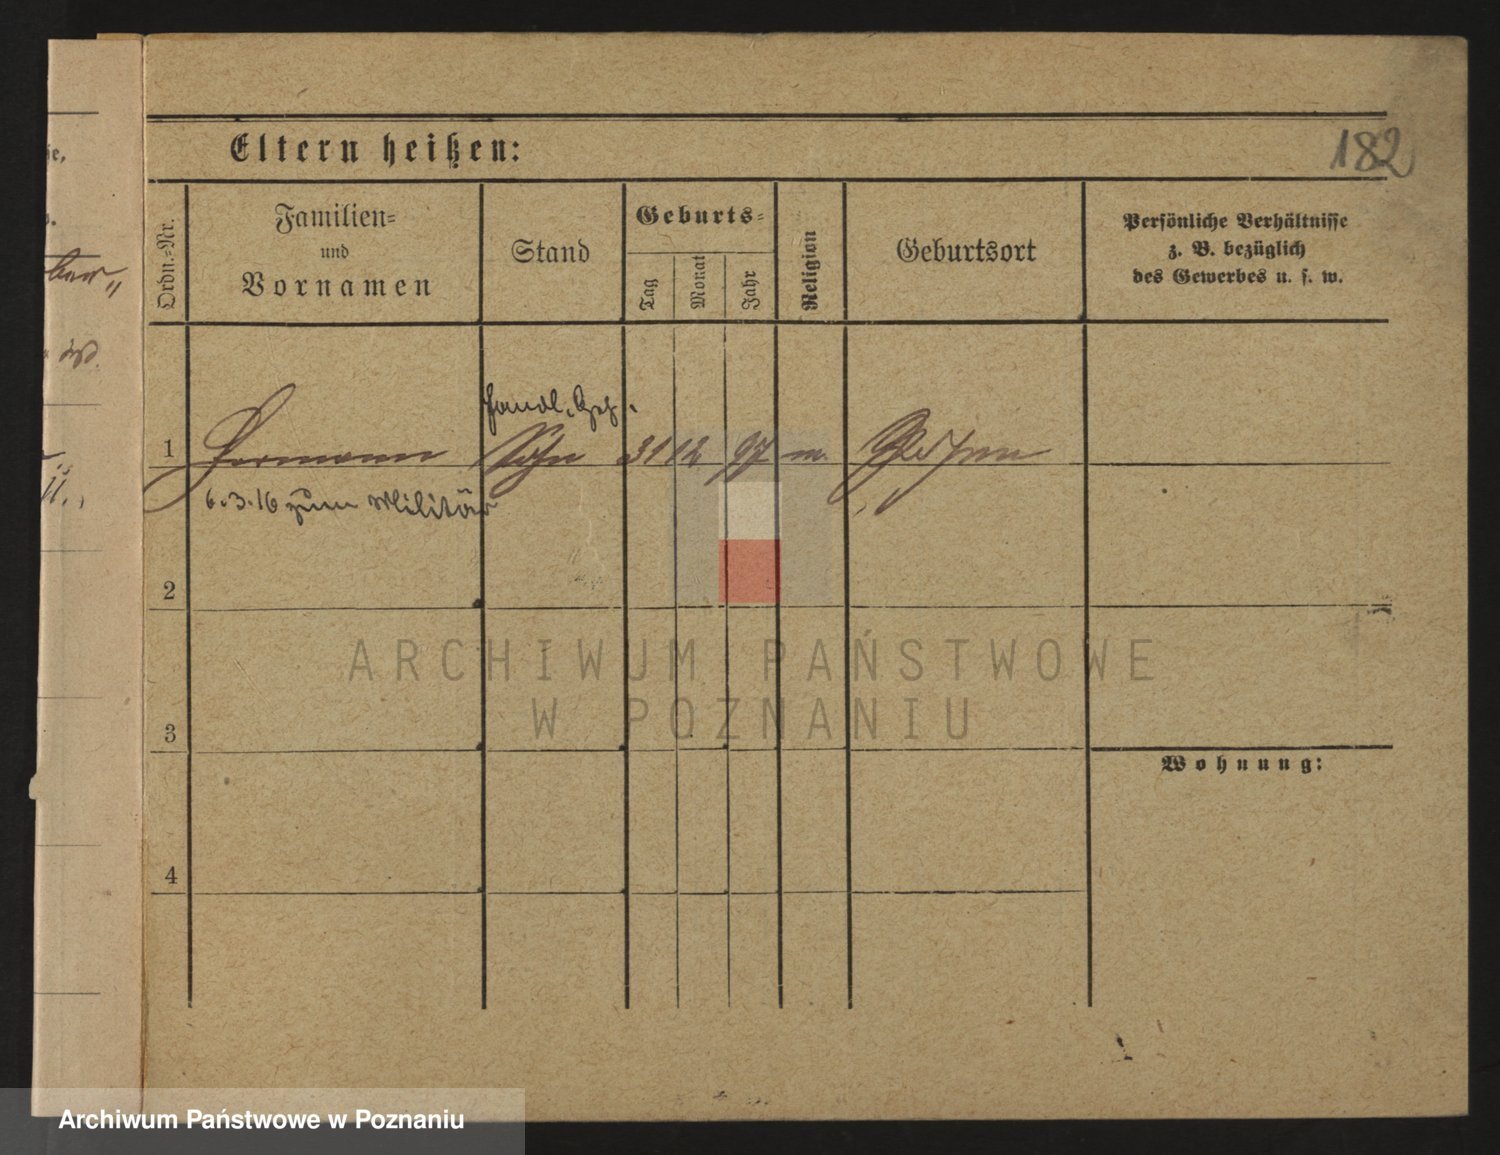 Eltern heißen:
182
Ordn.-Nr.
Familien-
und
Vornamen
Stand
Geburts-
Tag
Monat
Jahr
Religion
Geburtsort
Persönliche Verhältnisse
z. B. bezüglich
des Gewerbes u. s. w.
Handl. Geh.
1 Hermann Sohn 31 12 97 m.
6.3.16 zum Militär
2
ARCHIWUM PAŃSTWOWE
W POZNANIU
3
Wohnung:
4
Archiwum Państwowe w Poznaniu